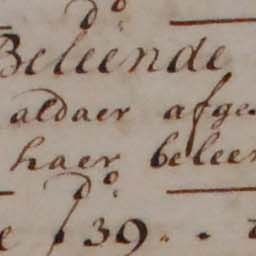 do
Beleende
aldaer afge
haer beleen
do
139